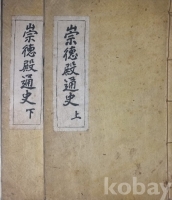 崇德殿通史 上
崇德殿通史 下
kobay